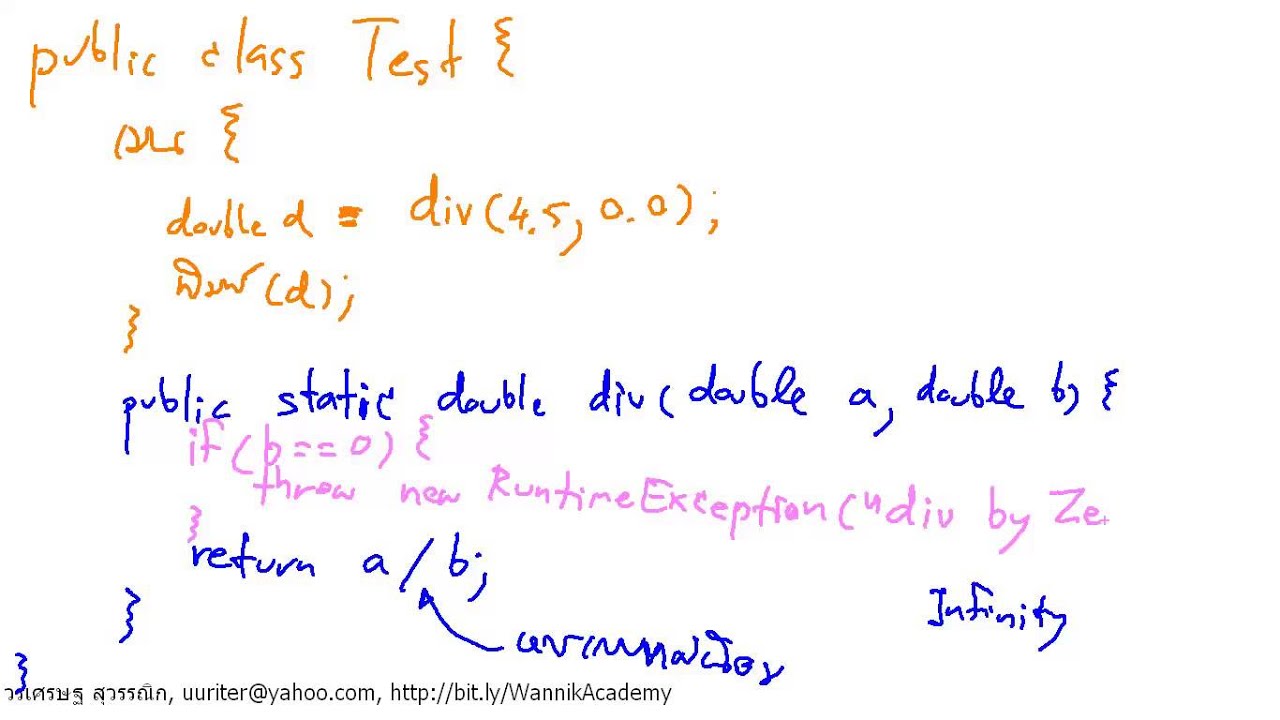 public class Test {
{
double d = div(4.5, 0.0);
พิมพ์(d);
}
public static double div(double a, double b) {
if(b==0) {
throw new RuntimeException("div by Ze
}
return a / b;
Infinity
}
}
วรเศรษฐ สุวรรณิก, uuriter@yahoo.com, http://bit.ly/WannikAcademy